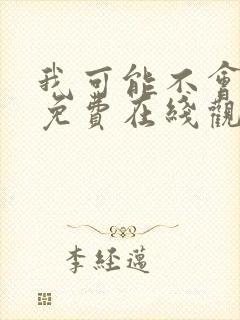 我可能不會
免費在綫觀
李經邁